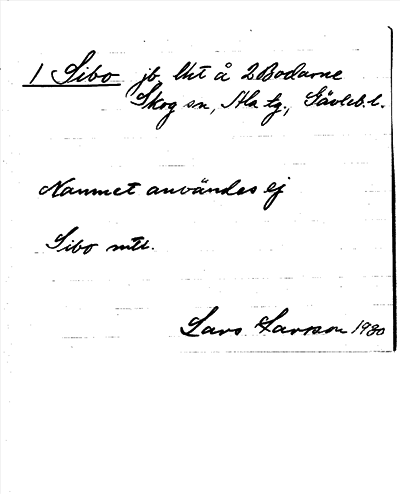 1 Sibo jb, lht å 2 Bodarne
Skog sn, Ala tg., Gävleb. l.
Namnet användes ej
Sibo mtl.
Lars Larsson 1930